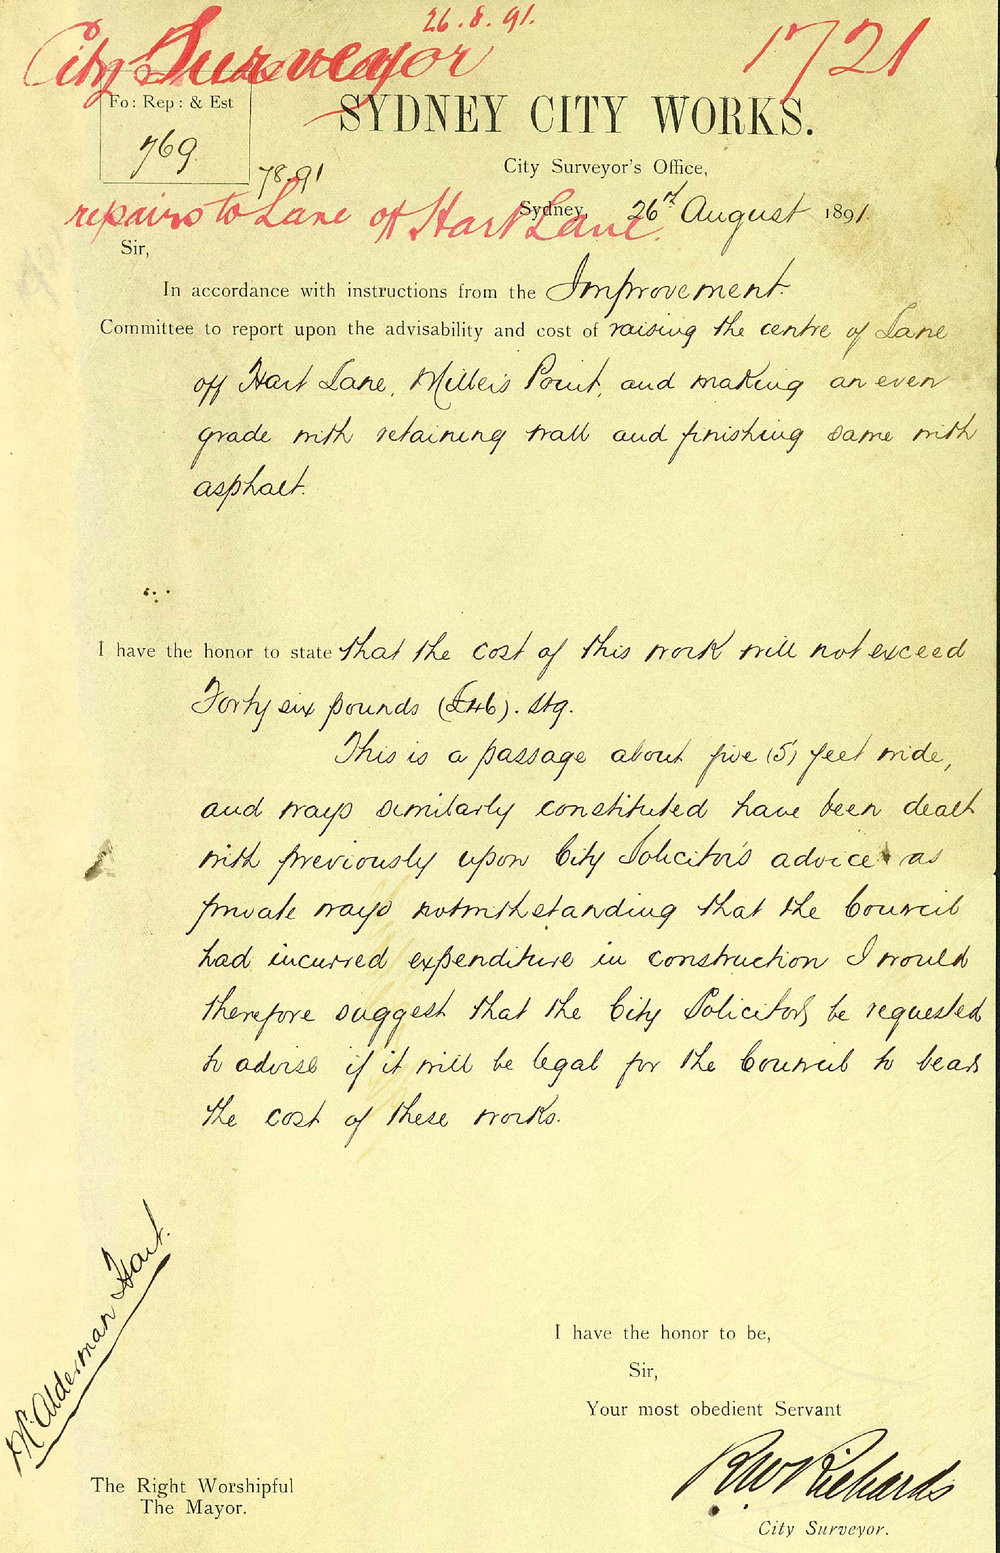 26.8.91.
City Surveyor
1721
Fo: Rep: & Est
769
78.91
SYDNEY CITY WORKS.
City Surveyor's Office,
Sydney, 26th August 1891.
repairs to Lane off Hart Lane.
Sir,
In accordance with instructions from the Improvement.
Committee to report upon the advisability and cost of raising the centre of Lane
off Hart Lane, Miller's Point, and making an even
grade with retaining wall and finishing same with
asphalt.
I have the honor to state that the cost of this work will not exceed
Forty six pounds (£46). Stg.
This is a passage about five (5) feet wide,
and ways similarly constituted have been dealt
with previously upon City Solicitor's advice as
private ways notwithstanding that the Council
had incurred expenditure in construction I would
therefore suggest that the City Solicitor be requested
to advise if it will be legal for the Council to bear
the cost of these works.
Mr Alderman Hart.
I have the honor to be,
Sir,
Your most obedient Servant
RW Richards
City Surveyor.
The Right Worshipful
The Mayor.